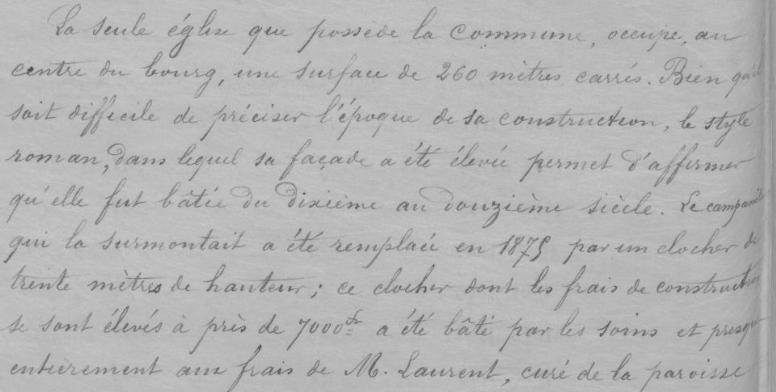 La seule église que possède la commune, occupe, au
centre du bourg, une surface de 260 mètres carrés. Bien qu'il
soit difficile de préciser l'époque de sa construction, le style
roman, dans lequel sa façade a été élevée permet d'affirmer
qu'elle fut bâtie du dixième au douzième siècle. Le campanile
qui la surmontait a été remplacé en 1875 par un clocher de
trente mètres de hauteur; ce clocher dont les frais de construction
se sont élevés à près de 7000fr a été bâti par les soins et presque
entièrement aux frais de M. Laurent, curé de la paroisse